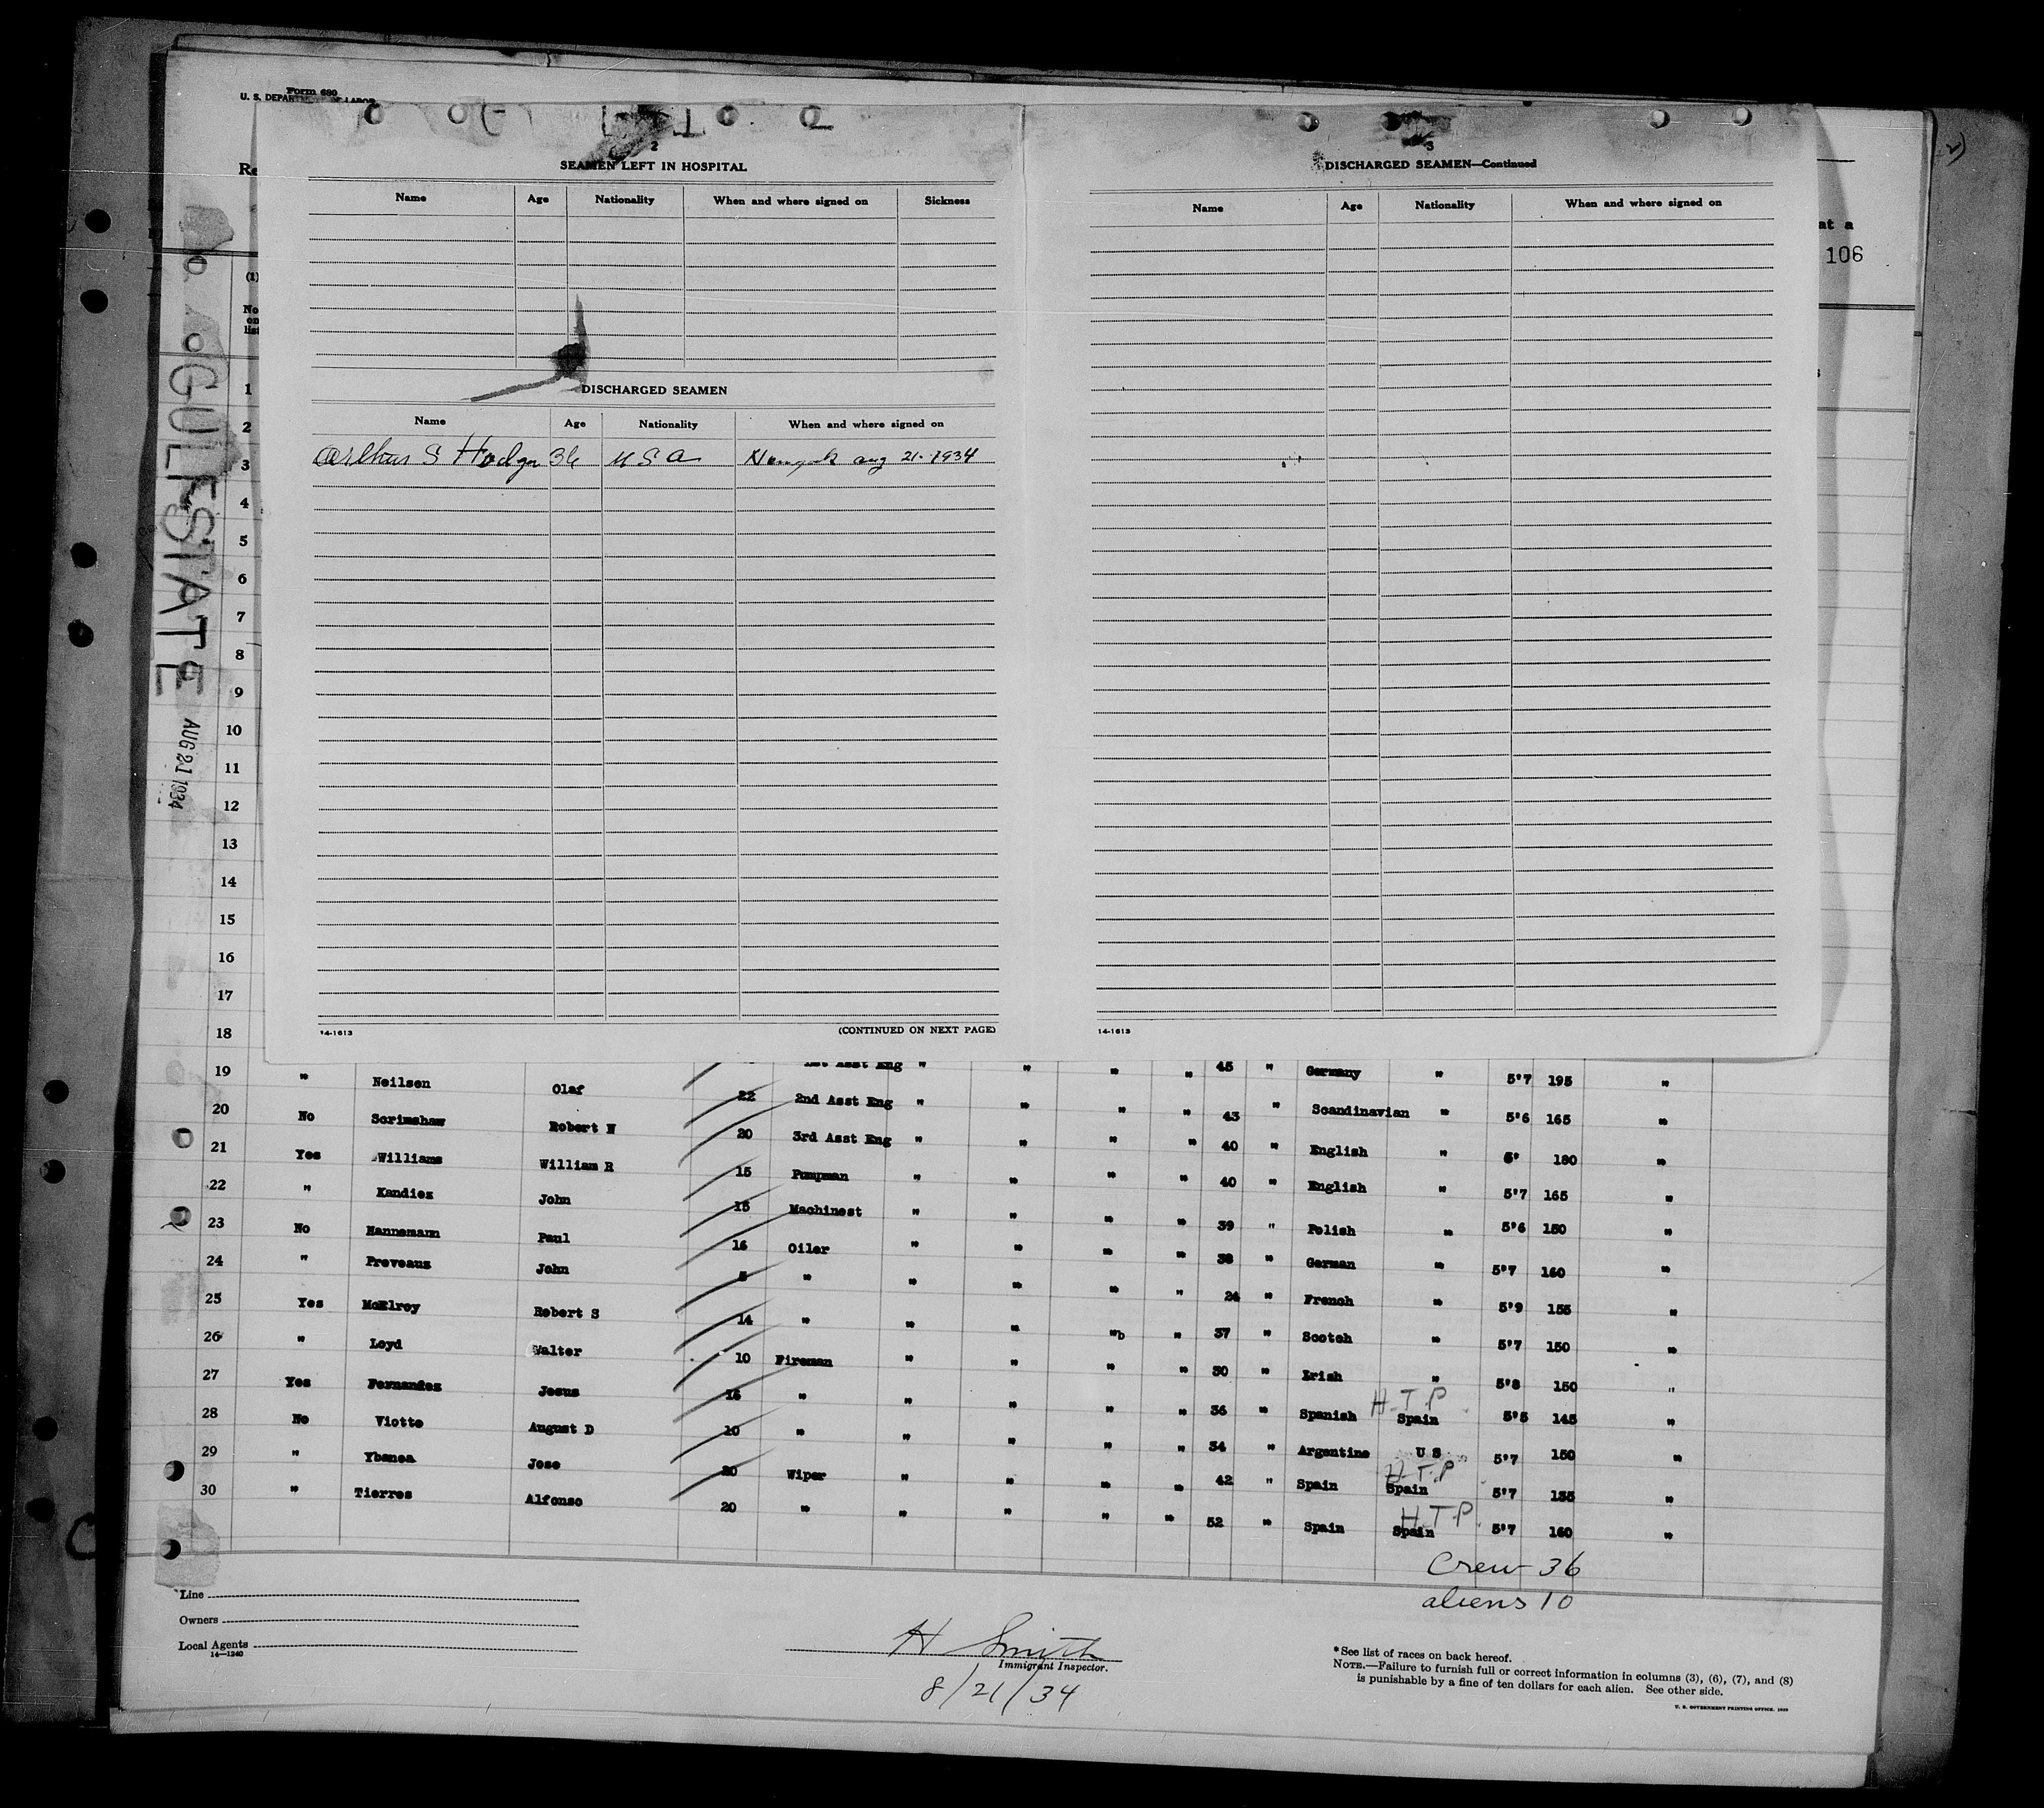 Form 680
U. S. DEPARTMENT OF LABOR
2
SEAMEN LEFT IN HOSPITAL
Name Age Nationality When and where signed on Sickness
DISCHARGED SEAMEN
Name Age Nationality When and where signed on
Arthur S 36 U S A Aug 21-1934
14-1613 (CONTINUED ON NEXT PAGE)
3
DISCHARGED SEAMEN—Continued
Name Age Nationality When and where signed on
14-1613
at a
106
(1)
No
on
list
GULFSTATE
AUG 21 1934
1
2
3
4
5
6
7
8
9
10
11
12
13
14
15
16
17
18
19 " Neilsen Olaf 1st Asst Eng " " " " 45 " Germany " 5'7 195 "
20 No Scrimshaw Robert W 22 2nd Asst Eng " " " " 43 " Scandinavian " 5'6 165 "
21 Yes Williams William R 20 3rd Asst Eng " " " " 40 " English " 5' 180 "
22 " Kandiez John 15 Pumpman " " " " 40 " English " 5'7 165 "
23 No Hannemann Paul 15 Machinest " " " " 39 " Polish " 5'6 150 "
24 " Preveaux John 16 Oiler " " " " 38 " German " 5'7 160 "
25 Yes McElroy Robert S 5 " " " " " 24 " French " 5'9 155 "
26 " Loyd Walter 14 " " " " " 37 " Scotch " 5'7 150 "
27 Yes Fernandez Jesus 10 Fireman " " " " 30 " Irish " 5'8 150 "
28 No Viotto August D 16 " " " " " 36 " Spanish H.T.P. Spain 5'5 145 "
29 " Ybanea Jose 10 " " " " " 34 " Argentine U S 5'7 150 "
30 " Tierres Alfonso 20 Wiper " " " " 42 " Spain H.T.P. Spain 5'7 135 "
20 " " " " " 52 " Spain H.T.P. Spain 5'7 160 "
Crew 36
aliens 10
Line
Owners
Local Agents
14—1240
H Smith
Immigrant Inspector.
8/21/34
*See list of races on back hereof.
NOTE.—Failure to furnish full or correct information in columns (3), (6), (7), and (8)
is punishable by a fine of ten dollars for each alien. See other side.
U. S. GOVERNMENT PRINTING OFFICE